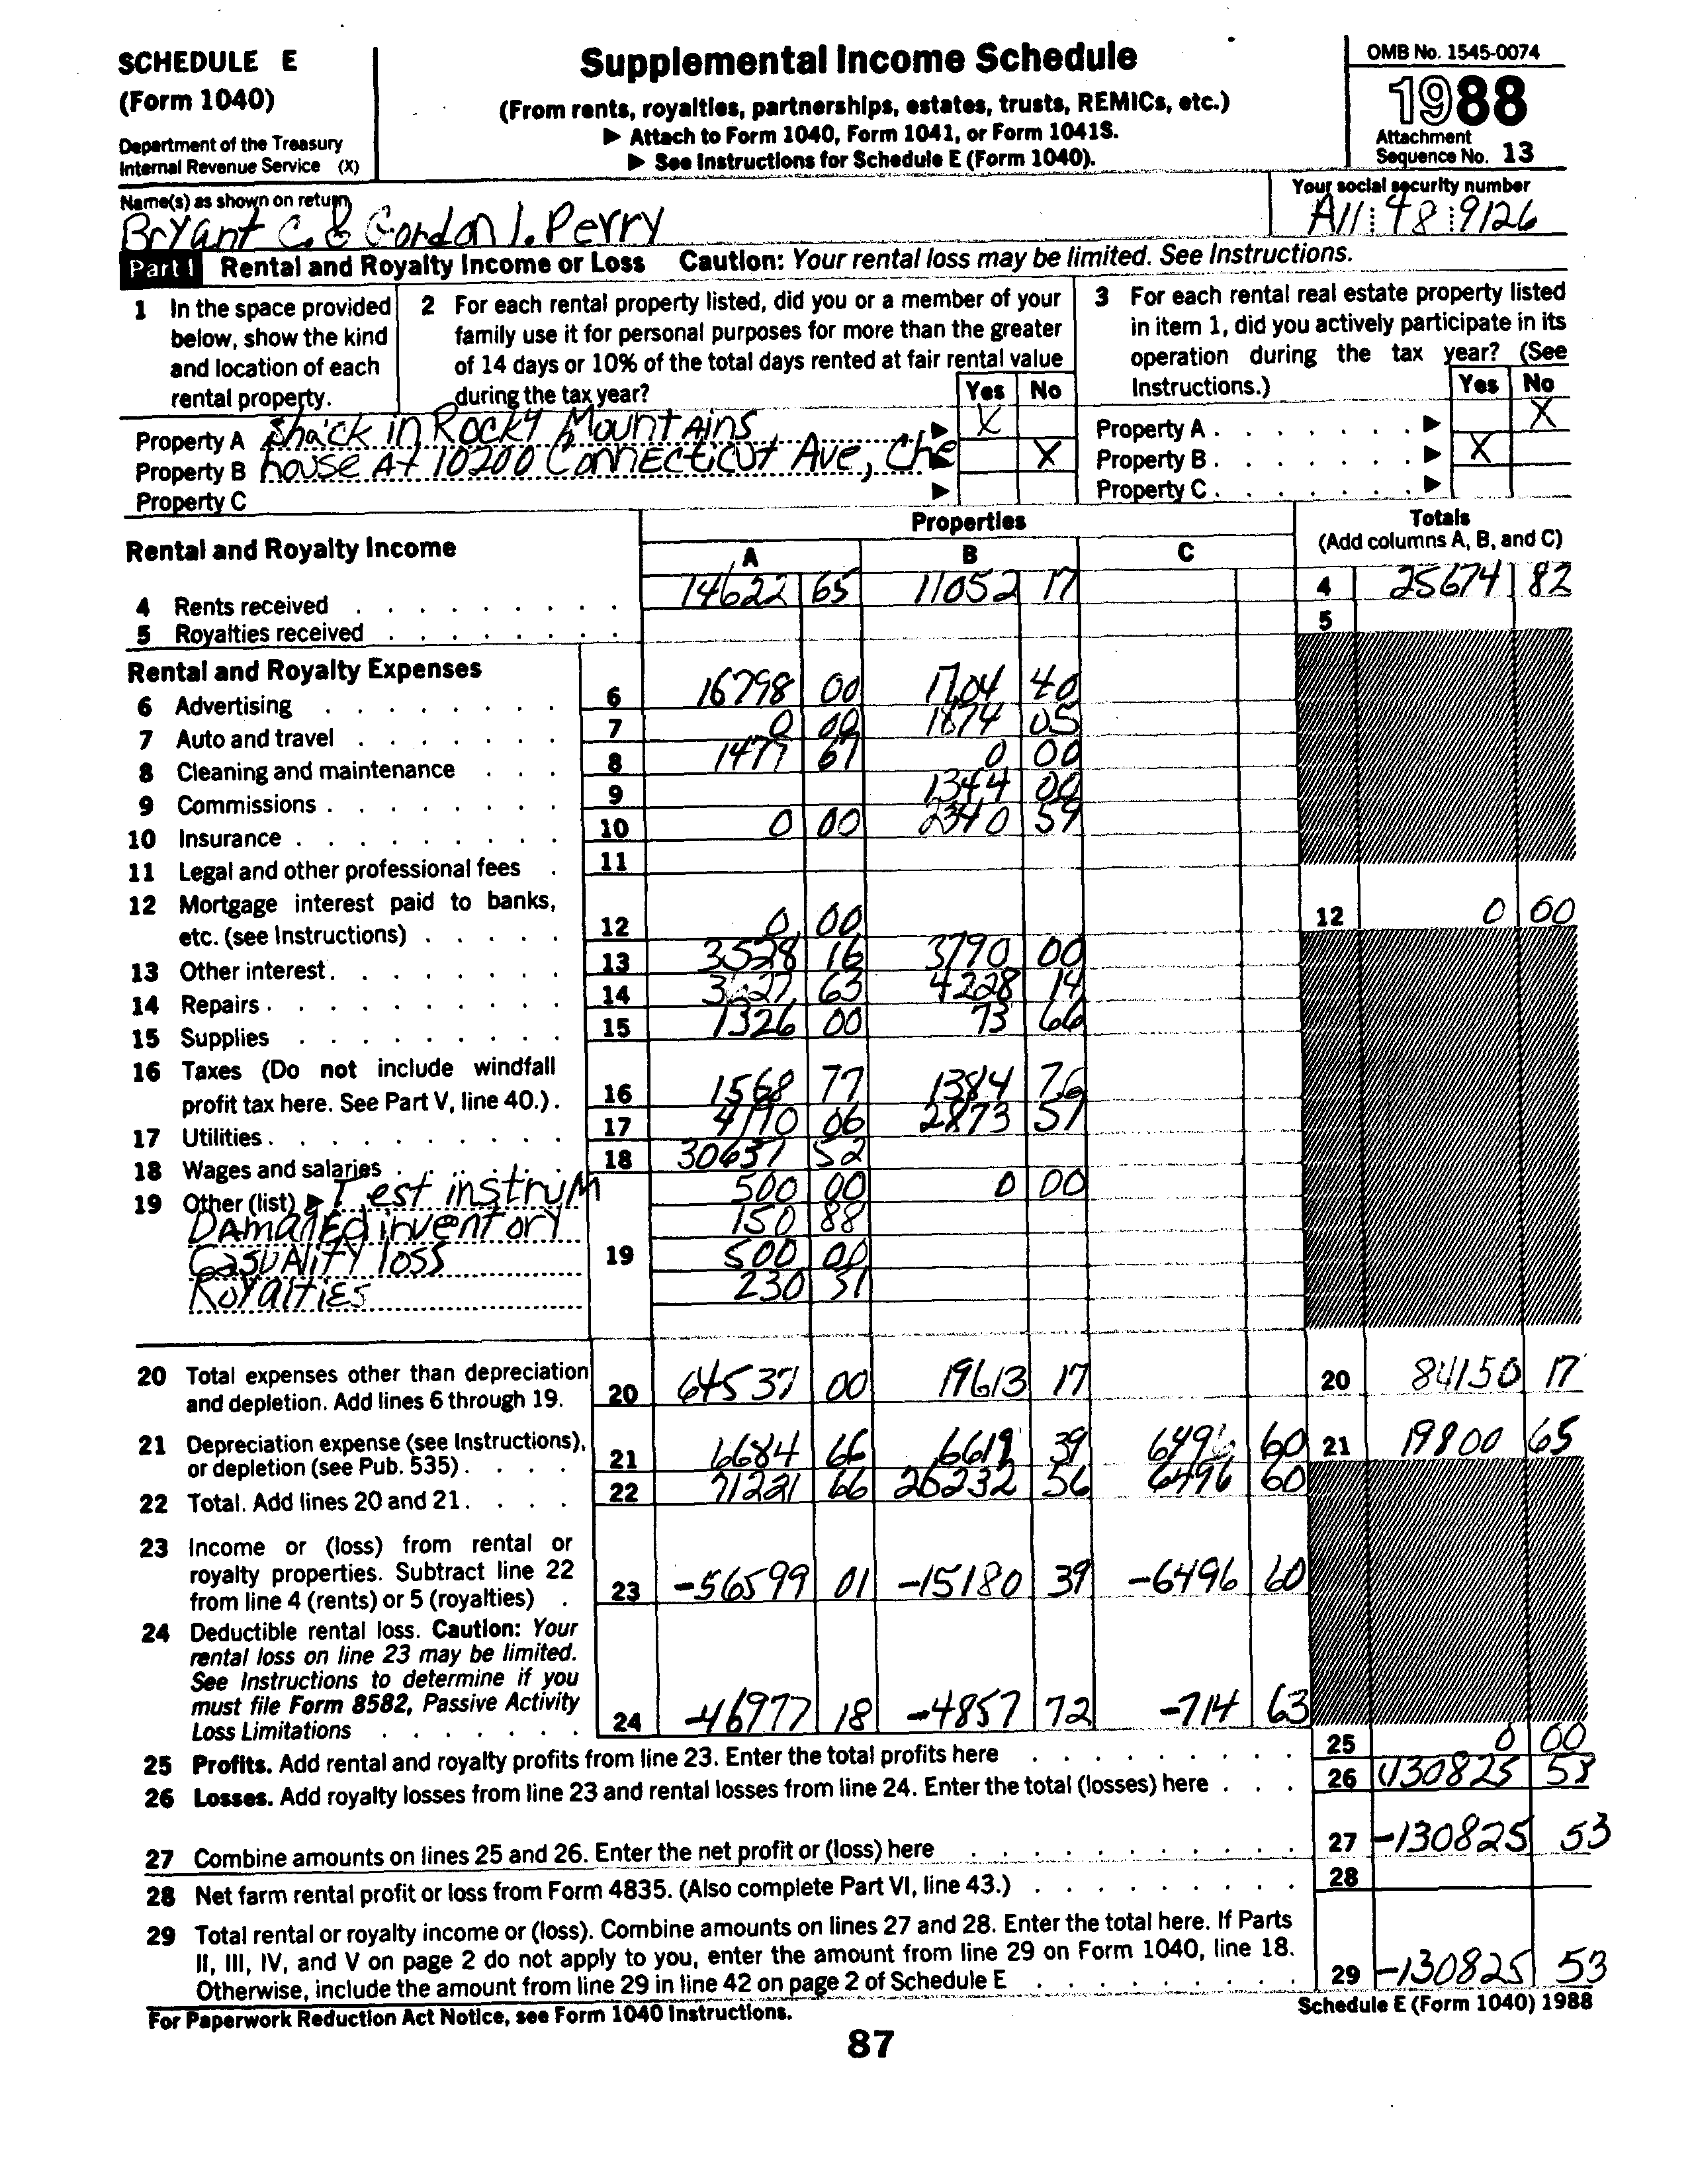 SCHEDULE E
(Form 1040)
Department of the Treasury
Internal Revenue Service (X)
Supplemental Income Schedule
(From rents, royalties, partnerships, estates, trusts, REMICs, etc.)
▶ Attach to Form 1040, Form 1041, or Form 1041S.
▶ See Instructions for Schedule E (Form 1040).
OMB No. 1545-0074
1988
Attachment
Sequence No. 13
Name(s) as shown on return
Bryant C. & Gordon I. Perry
Your social security number
A11 48 9126
Part I Rental and Royalty Income or Loss Caution: Your rental loss may be limited. See Instructions.
1 In the space provided
below, show the kind
and location of each
rental property.
2 For each rental property listed, did you or a member of your
family use it for personal purposes for more than the greater
of 14 days or 10% of the total days rented at fair rental value
during the tax year?
Yes No
3 For each rental real estate property listed
in item 1, did you actively participate in its
operation during the tax year? (See
Instructions.)
Yes No
Property A Shack in Rocky Mountains ▶ X
Property B house At 10200 Connecticut Ave, Che ▶ X
Property C ▶
Property A . . . . . . . ▶ X
Property B . . . . . . . ▶ X
Property C . . . . . . . ▶
Rental and Royalty Income
Properties
A B C
Totals
(Add columns A, B, and C)
4 Rents received 14622 65 11052 17 4 25674 82
5 Royalties received 5
Rental and Royalty Expenses
6 Advertising 6 16798 00 1704 40
7 Auto and travel 7 0 00 1874 05
8 Cleaning and maintenance 8 1477 67 0 00
9 Commissions 9 1344 00
10 Insurance 10 0 00 2340 59
11 Legal and other professional fees 11
12 Mortgage interest paid to banks,
etc. (see Instructions) 12 0 00 12 0 00
13 Other interest 13 3528 16 3790 00
14 Repairs 14 63 4228 14
15 Supplies 15 1326 00 73 66
16 Taxes (Do not include windfall
profit tax here. See Part V, line 40.) 16 1568 77 1384 76
17 Utilities 17 4190 06 2873 57
18 Wages and salaries 18 30637 52
19 Other (list) ▶ Test instrum 500 00 0 00
Damaged inventory 150 88
Casuality loss 19 500 00
Royalties 230 31
20 Total expenses other than depreciation
and depletion. Add lines 6 through 19. 20 64537 00 19613 17 20 84150 17
21 Depreciation expense (see Instructions),
or depletion (see Pub. 535) 21 6684 66 6619 39 6496 60 21 19800 65
22 Total. Add lines 20 and 21. 22 71221 66 26232 56 6496 60
23 Income or (loss) from rental or
royalty properties. Subtract line 22
from line 4 (rents) or 5 (royalties) 23 -56599 01 -15180 39 -6496 60
24 Deductible rental loss. Caution: Your
rental loss on line 23 may be limited.
See Instructions to determine if you
must file Form 8582, Passive Activity
Loss Limitations 24 -46977 18 -4857 72 -714 63
25 Profits. Add rental and royalty profits from line 23. Enter the total profits here 25 0 00
26 Losses. Add royalty losses from line 23 and rental losses from line 24. Enter the total (losses) here 26 (130825 53
27 Combine amounts on lines 25 and 26. Enter the net profit or (loss) here 27 -130825 53
28 Net farm rental profit or loss from Form 4835. (Also complete Part VI, line 43.) 28
29 Total rental or royalty income or (loss). Combine amounts on lines 27 and 28. Enter the total here. If Parts
II, III, IV, and V on page 2 do not apply to you, enter the amount from line 29 on Form 1040, line 18.
Otherwise, include the amount from line 29 in line 42 on page 2 of Schedule E 29 -130825 53
For Paperwork Reduction Act Notice, see Form 1040 Instructions.
Schedule E (Form 1040) 1988
87